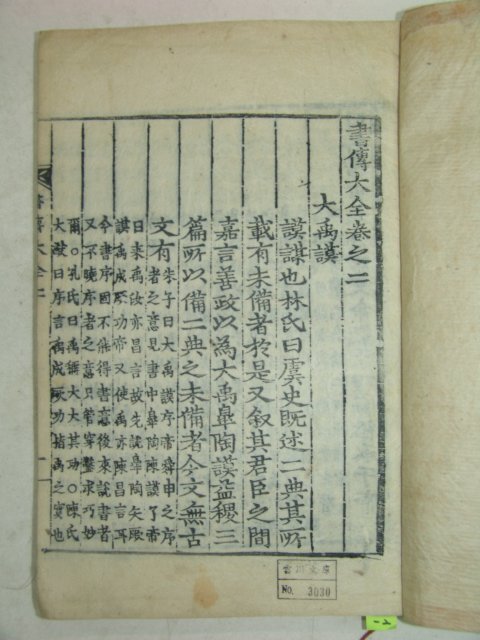 書傳大全卷之二
大禹謨
謨謀也林氏曰虞史旣述二典其所
載有未備者於是又叙其君臣之間
嘉言善政以為大禹皐陶謨益稷三
篇所以備二典之未備者今文無古
文有
朱子曰大禹謨序帝舜申之序
者之意見書中皐陶陳謨了帝
曰來禹汝亦昌言故先說皐陶矢厥
謨禹成厥功帝又使禹亦陳昌言耳
今書序固不能得書意後來說書者
又不曉序者之意只管穿鑿求巧妙
爾○孔氏曰禹稱大大其功○陳氏
大猷曰序言禹成厥功指禹之實也
書傳大全二
一
No. 3030
-2